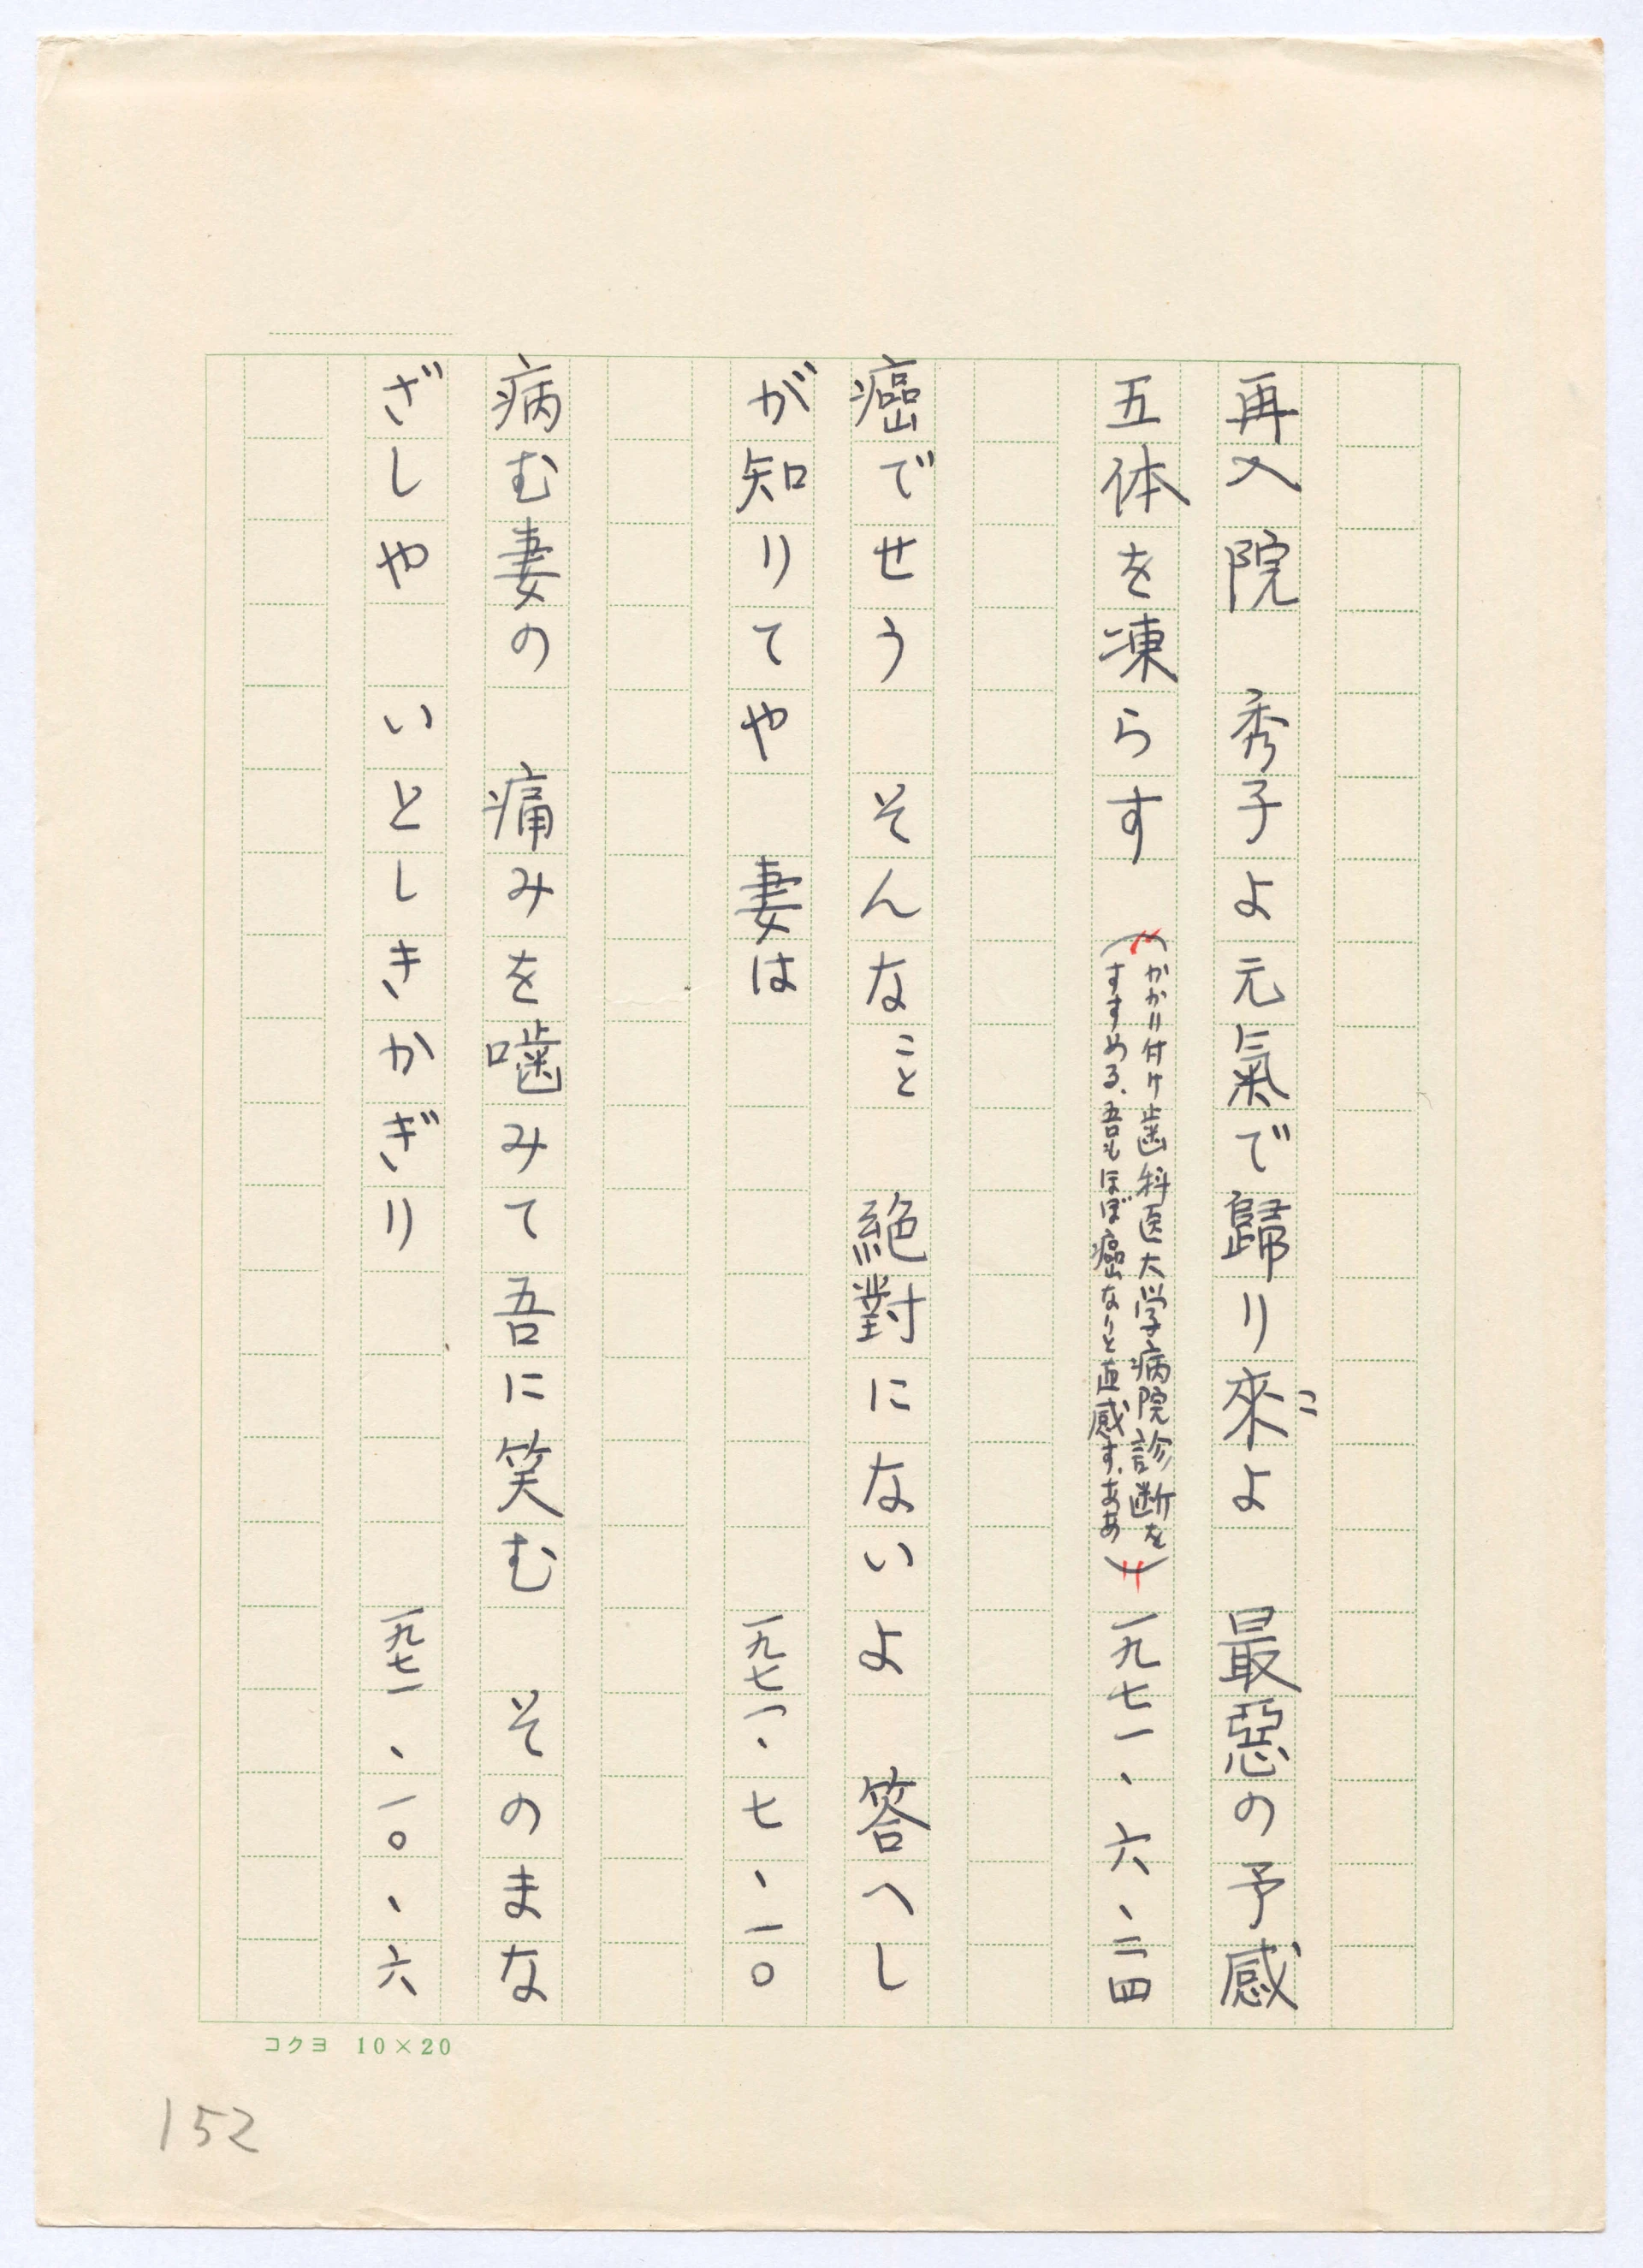 再入院　秀子よ元氣で歸り來よ　最惡の予感
こ
五体を凍らす　（かかり付け歯科医大学病院診断を
すすめる、吾もほぼ癌なりと直感す、ああ）一九七一、六、二四
癌でせう　そんなこと　絶對にないよ　答へし
が知りてや　妻は　一九七一、七、一〇
病む妻の　痛みを噛みて吾に笑む　そのまな
ざしや　いとしきかぎり　一九七一、一〇、六
コクヨ　10×20
152